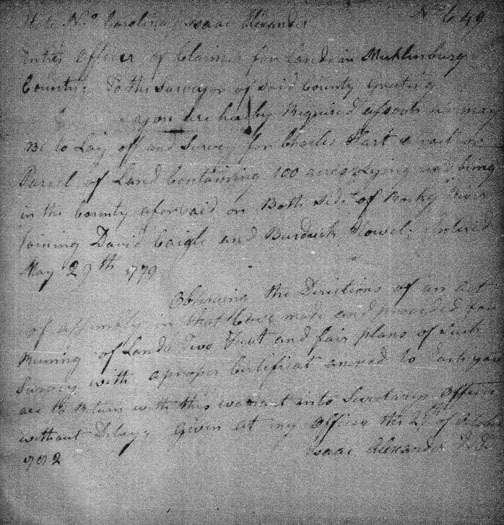 State No. Carolina Isaac Alexander No. 640
Entry Officer of Claims for Lands in Mecklinburg
County. To the Surveyor of said County Greeting
you are hereby Required as soon as may
Be to Lay off and Survey for Charles Hart a
Parcel of Land Containing 100 acres Lying and being
in the County aforesaid on Both Sids of Rocky River
Joining David Caigle and Burdock Howel
May 29th 1779
Observing the Directions of an act
of assembly in that Case made and provided for
Runing of Lands Two Just and fair plans of Such
Survey with a proper Certificat anexed to
are to Return with this warrant into Secretarys Office
without Delay. Given at my Office the of
Isaac Alexander